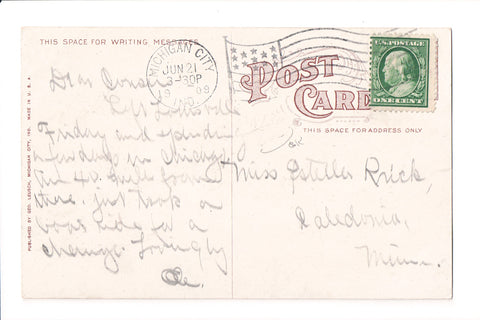 THIS SPACE FOR WRITING MESSAGES
MICHIGAN CITY
JUN 21
3-30P
IND.
U.S. POSTAGE
ONE CENT
POST
CARD
THIS SPACE FOR ADDRESS ONLY
Dear Cousin
Left Louisville
Friday and spending
Sunday in Chicago
Am 40 miles from
there, just took a
boat ride for a
change. Lovingly
Miss Estella Rick,
Caledonia,
Minn.